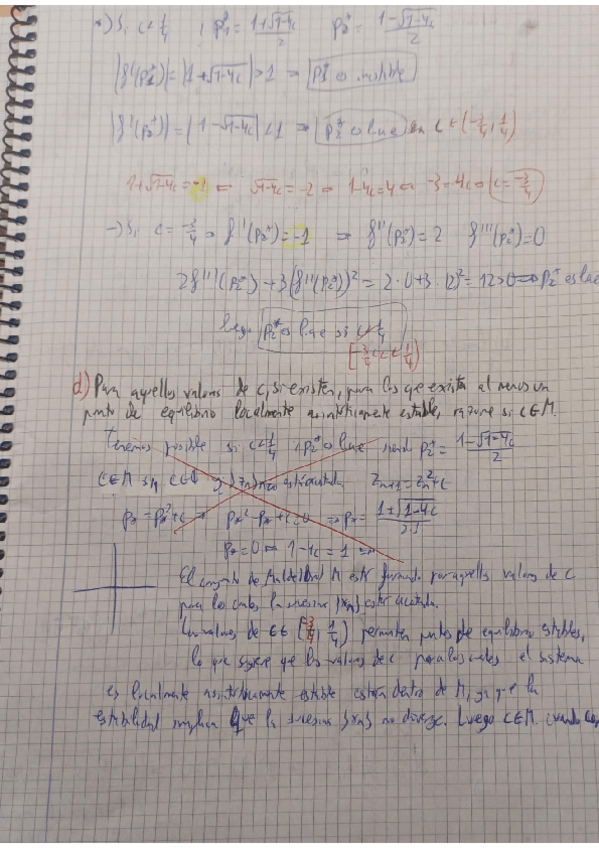 •) Si c<1/4 , p₁* = (1+√1-4c)/2 p₂* = (1-√1-4c)/2
|f'(p₁*)| = |1+√1-4c| > 1 ⇒ p₁* es inestable
|f'(p₂*)| = |1-√1-4c| < 1 ⇒ p₂* es l.a.e en c ∈ (-3/4, 1/4)
√1-4c = -2 ⇔ 1-4c=4 ⇔ -3=4c ⇔ c=-3/4
→) Si c = -3/4 ⇒ f'(p₂*) = -1 ⇒ f''(p₂*) = 2 f'''(p₂*) = 0
2f'''(p₂*) + 3(f''(p₂*))² = 2·0+3·(2)² = 12>0 ⇒ p₂* es l.a.e
luego p₂* es l.a.e si c<1/4
d) Para aquellos valores de c, si existen, para los que exista al menos un
punto de equilibrio localmente asintóticamente estable, razone si c∈M.
Tenemos posible si c<1/4 , p₂* es l.a.e siendo p₂* = (1-√1-4c)/2
c∈M si c∈ℂ está acotada zₙ₊₁=zₙ²+c
1-4c = 1
El conjunto de Mandelbrot M está formado por aquellos valores de c
para los cuales la sucesión {xₙ} está acotada.
Los valores de c∈ [-3/4, 1/4) permiten puntos de equilibrio estables,
lo que sugiere que los valores de c para los cuales el sistema
es localmente asintóticamente estable están dentro de M, ya que la
estabilidad implica que la sucesión {xₙ} no diverge. Luego c∈M. cuando